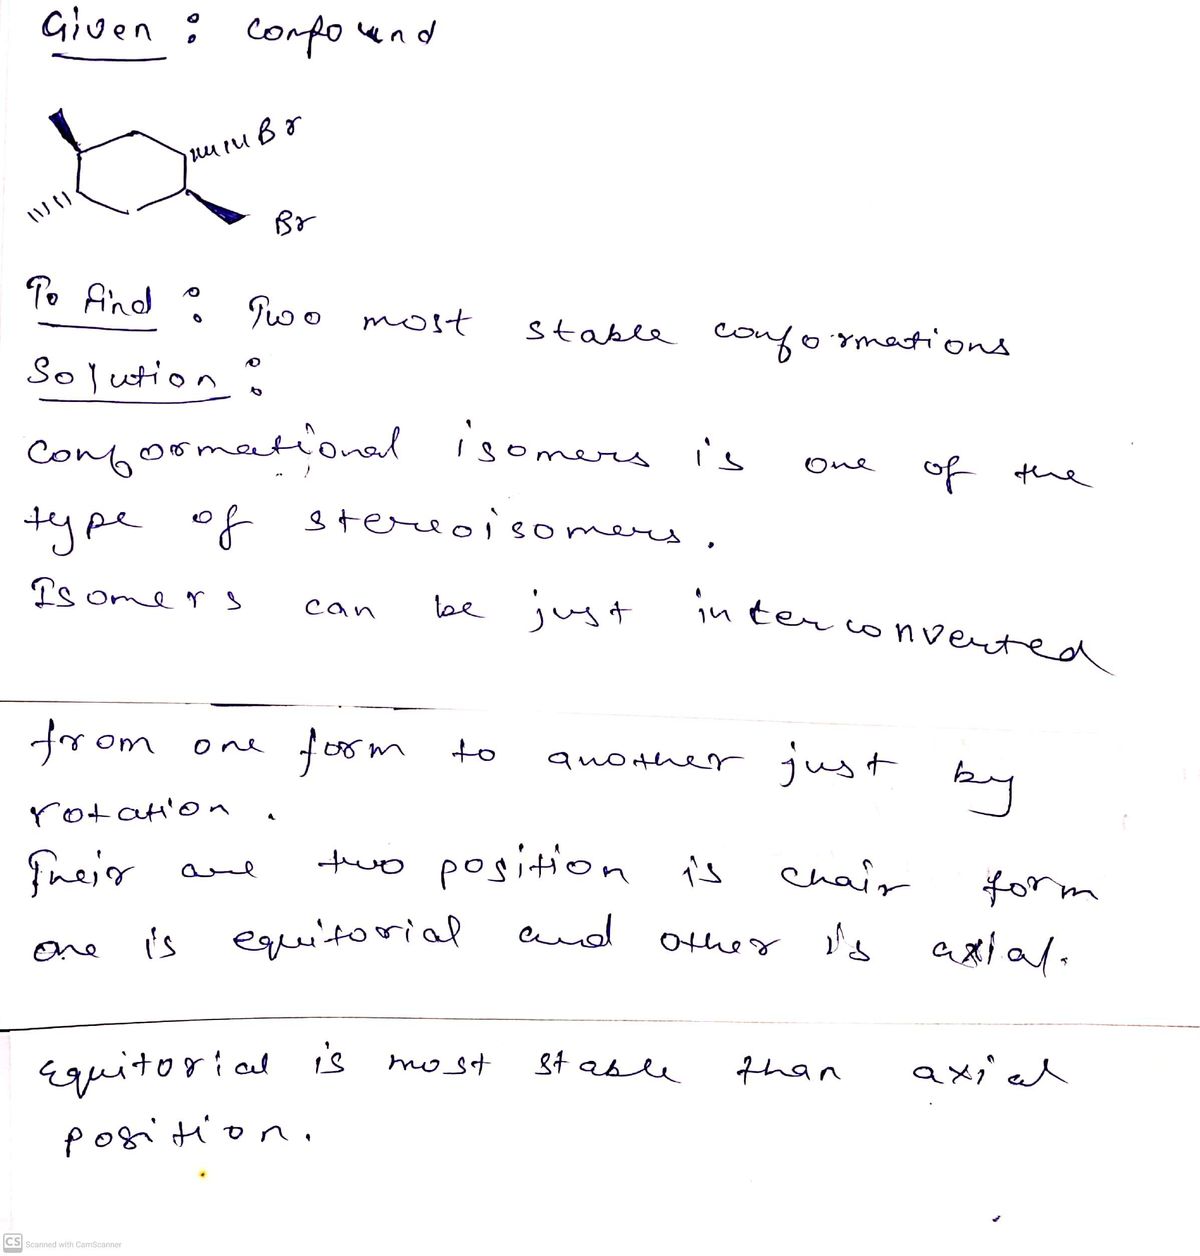 Given : compound
Br
Br
To find : Two most stable conformations
Solution :
Conformational isomers is one of the
type of stereoisomers.
Isomers can be just interconverted
from one form to another just by
rotation.
Their are two position is chair form
one is equitorial and other is axial.
Equitorial is most stable than axial
position.
CS Scanned with CamScanner